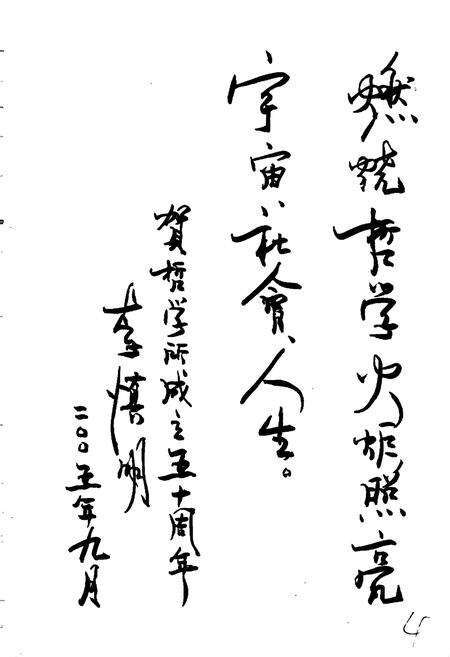 燃烧哲学火炬照亮
宇宙、社会、人生。
贺哲学所成立五十周年
李慎明
二〇〇五年九月
4